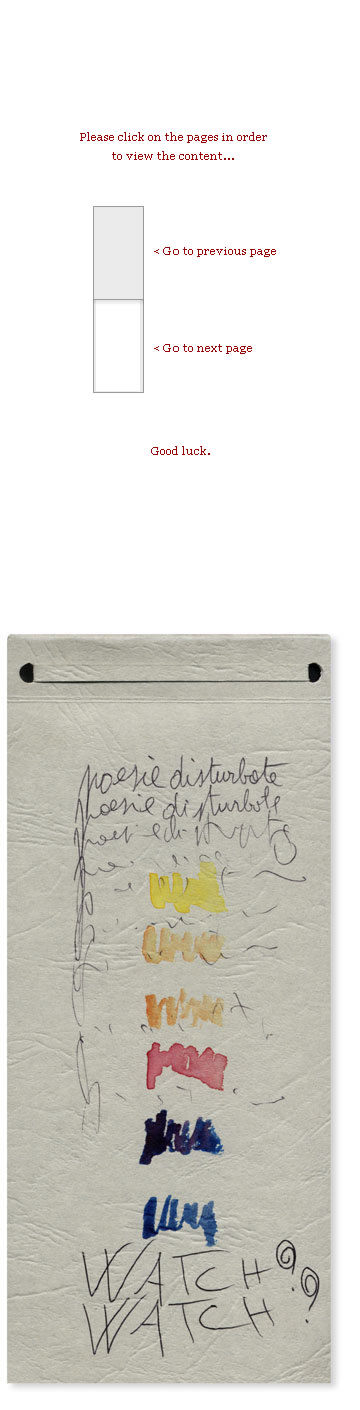 Please click on the pages in order
to view the content...
< Go to previous page
< Go to next page
Good luck.
poesie disturbate
poesie disturbate
WATCH
WATCH